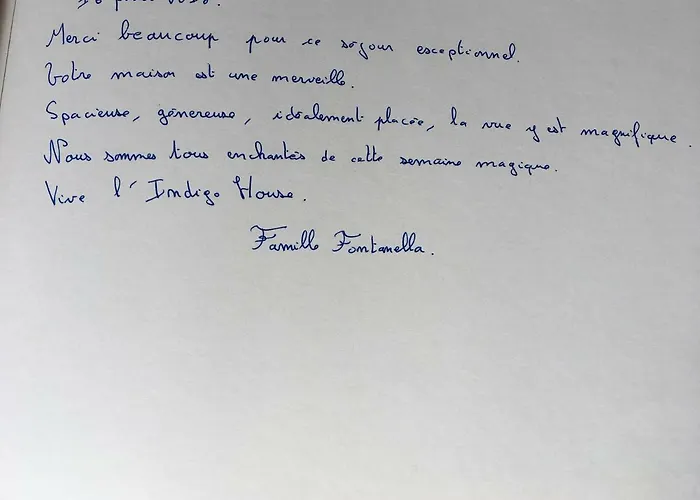 Merci beaucoup pour ce séjour exceptionnel.
Votre maison est une merveille.
Spacieuse, génereuse, idéalement placée, la vue y est magnifique.
Nous sommes tous enchantés de cette semaine magique.
Vive l'Indigo House.
Famille Fontanella.